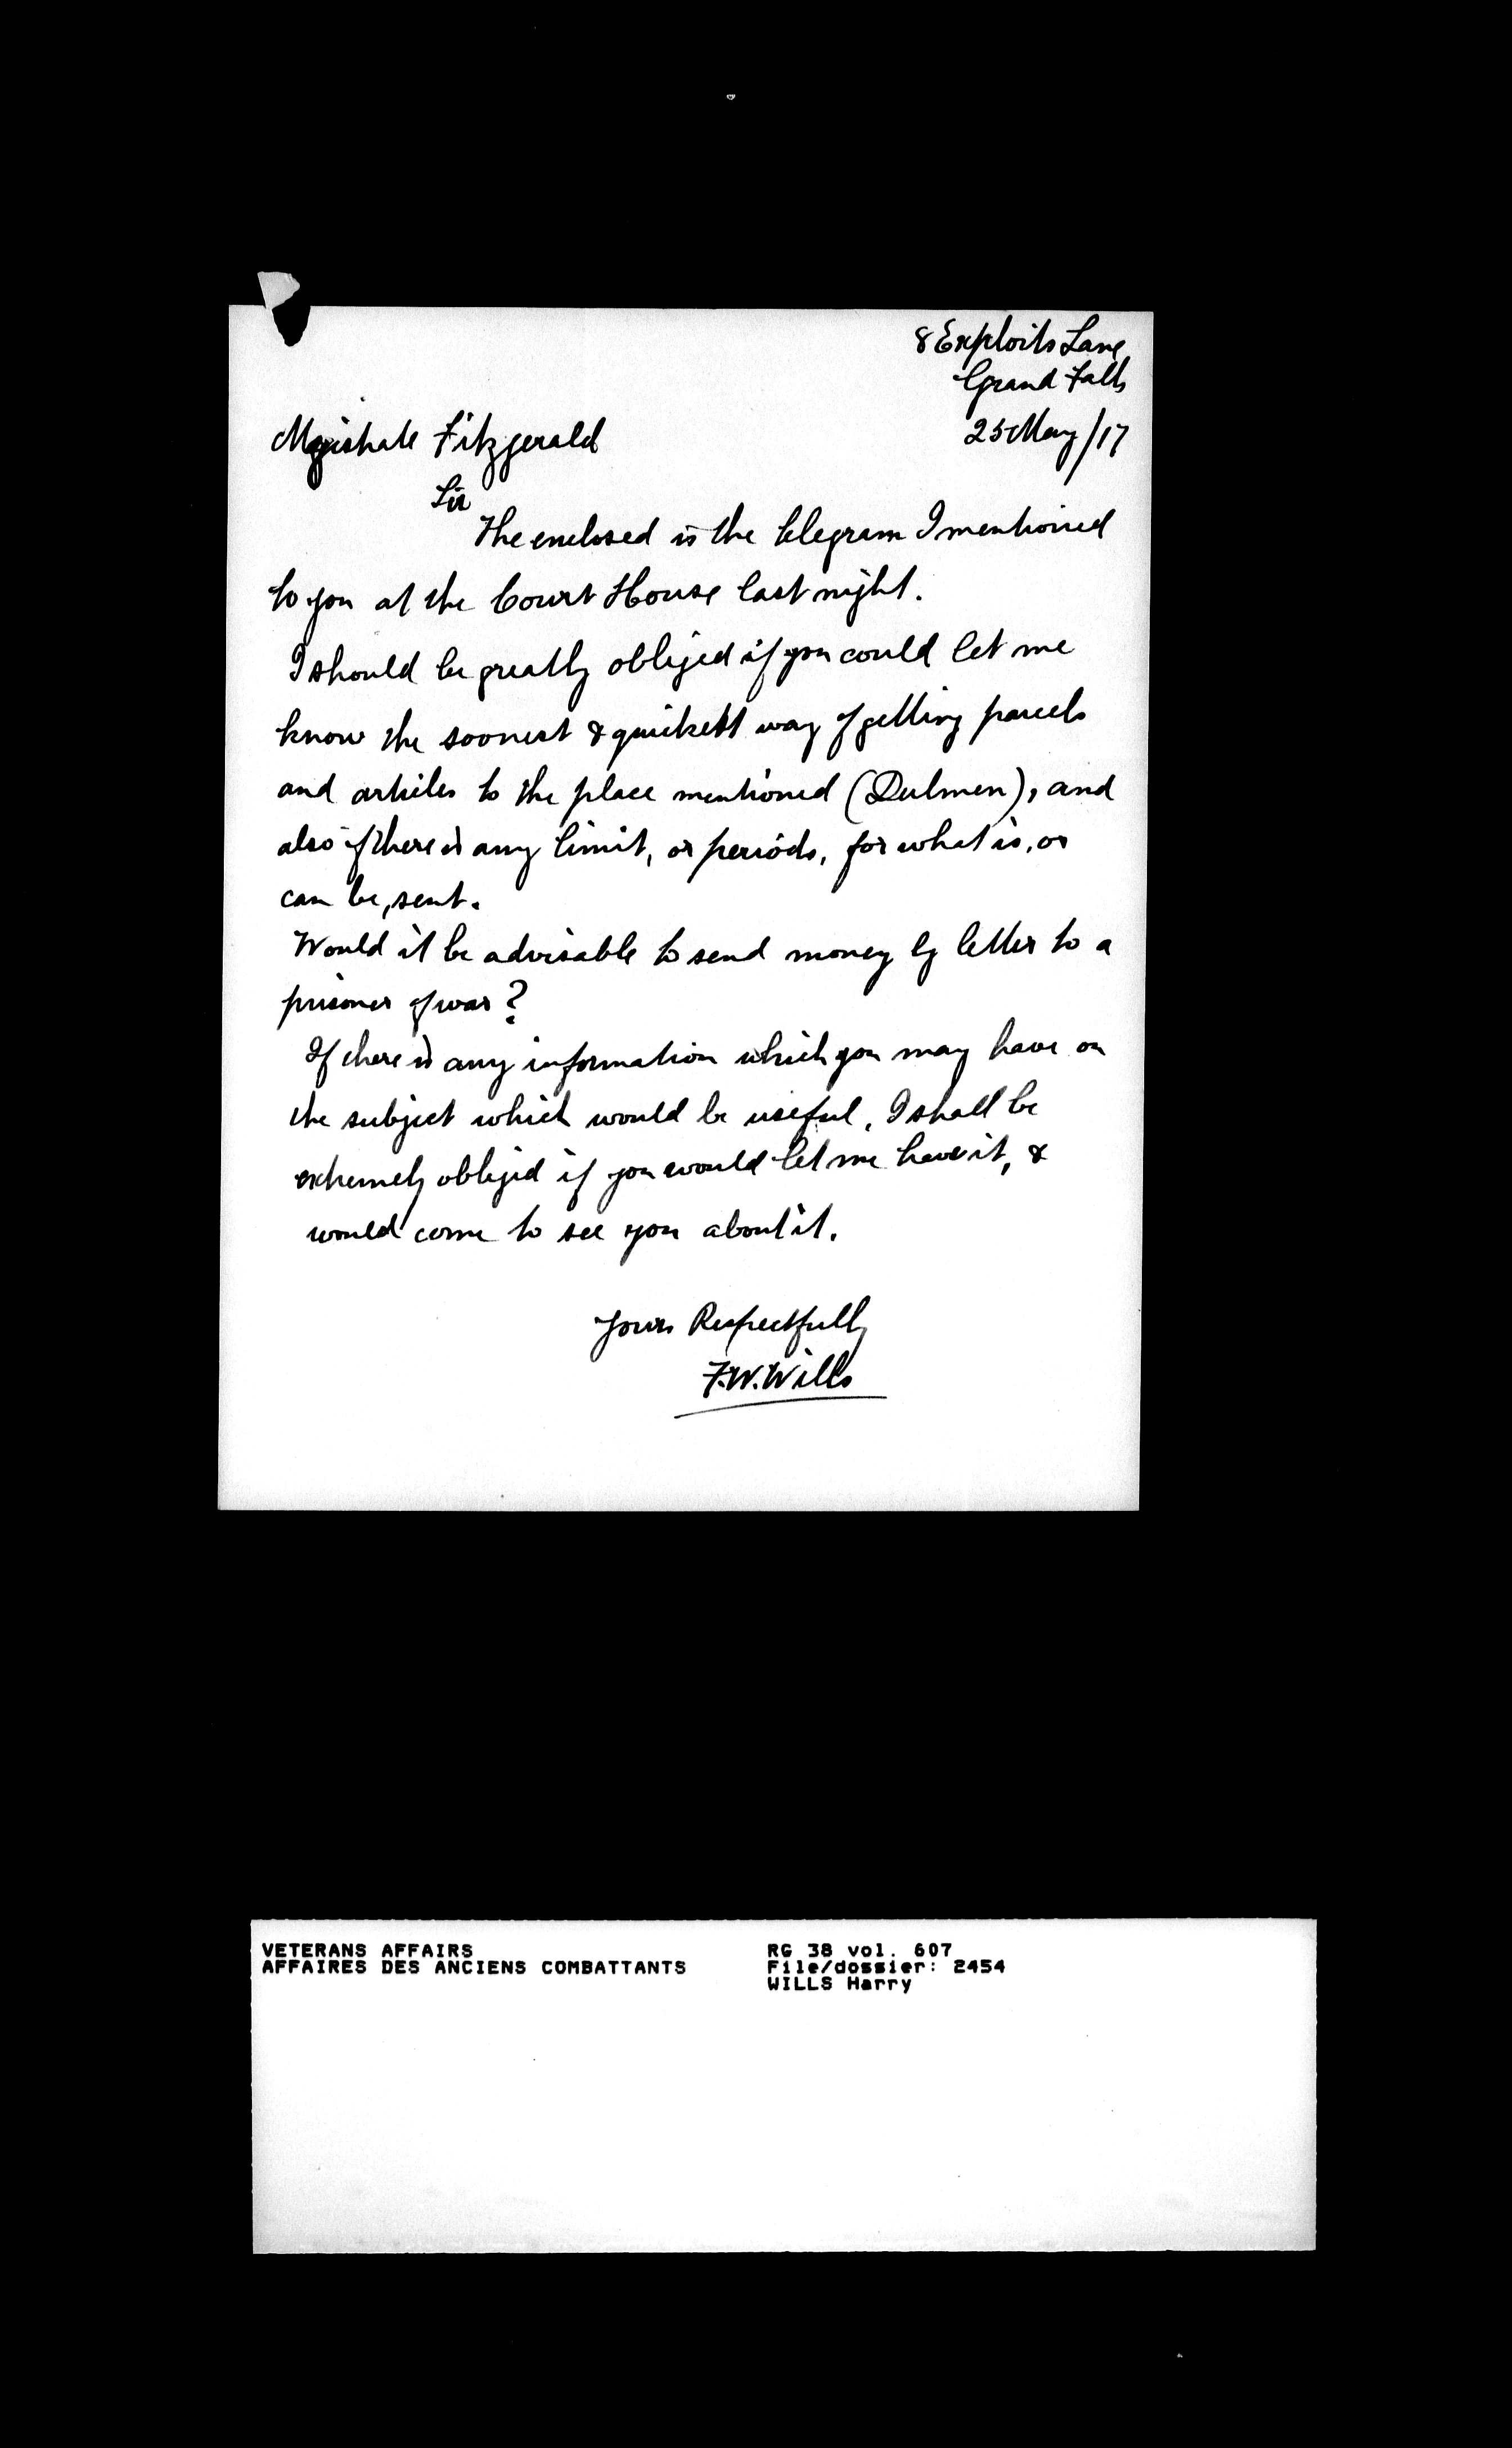 8 Exploits Lane
Grand Falls
25 May/17
Magistrate Fitzgerald
Sir
The enclosed is the telegram I mentioned
to you at the Court House last night.
I should be greatly obliged if you could let me
know the soonest & quickest way of getting parcels
and articles to the place mentioned (Dulmen), and
also if there is any limit, or periods, for what is, or
can be, sent.
Would it be advisable to send money by letter to a
prisoner of war?
If there is any information which you may have on
the subject which would be useful, I shall be
extremely obliged if you would let me have it, &
would come to see you about it.
Yours Respectfully
F.W. Wills
VETERANS AFFAIRS
AFFAIRES DES ANCIENS COMBATTANTS
RG 38 vol. 607
File/dossier: 2454
WILLS Harry